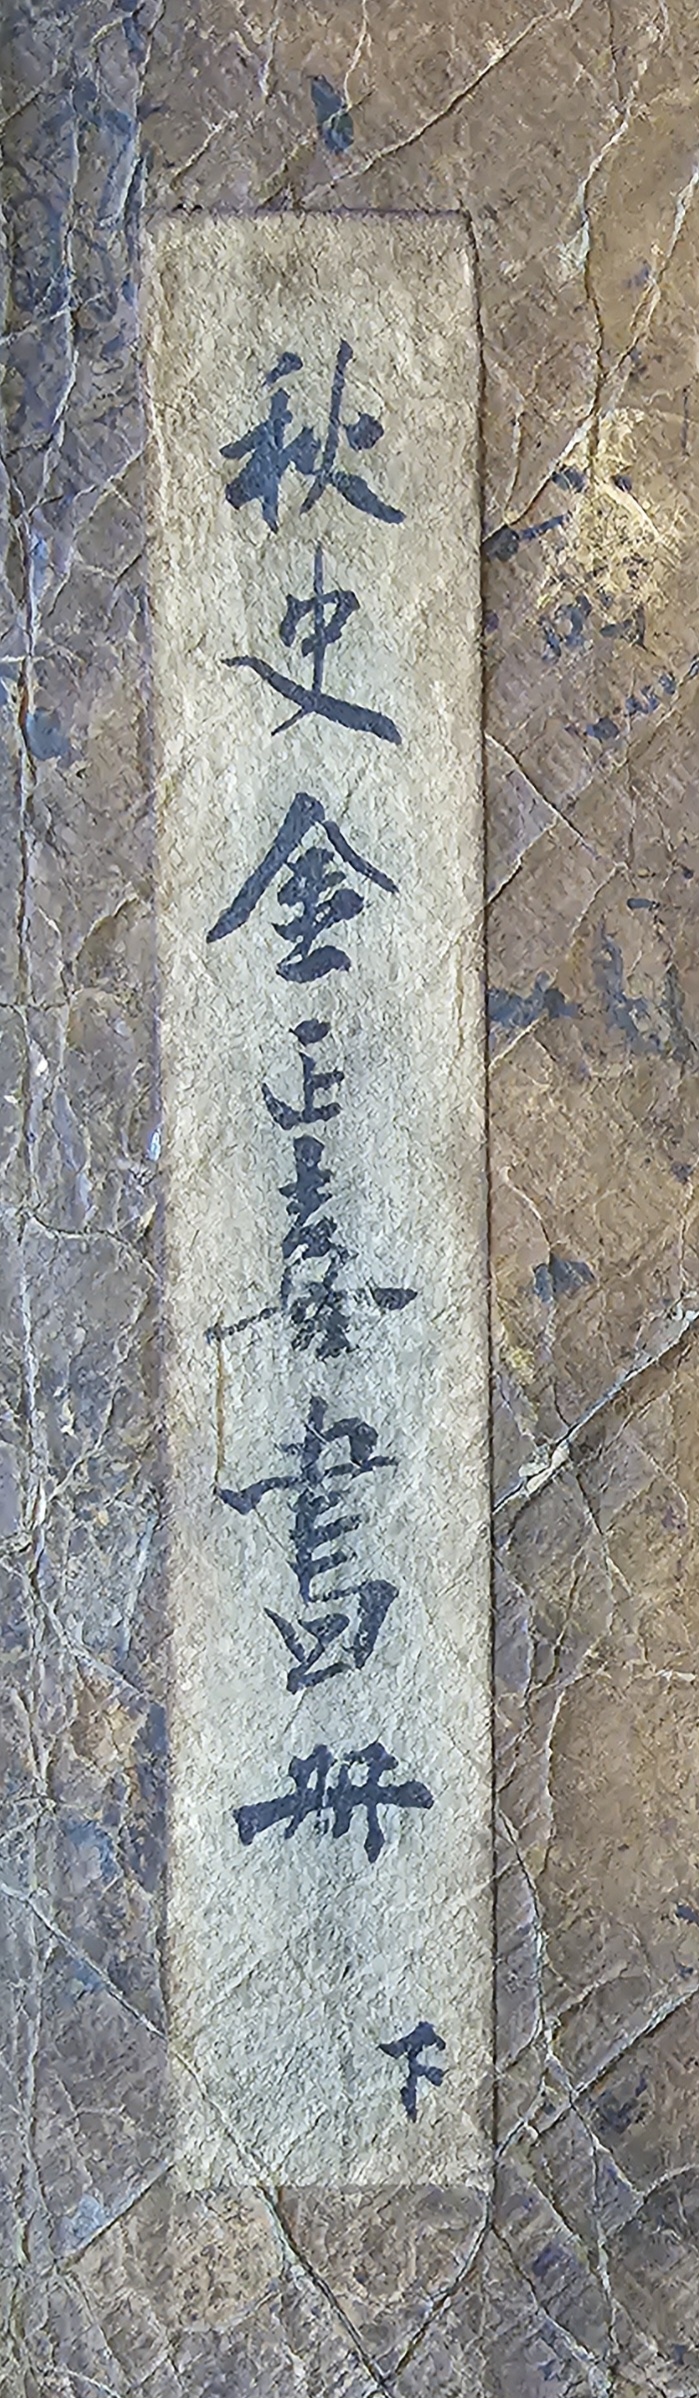 秋史金正喜書冊
下